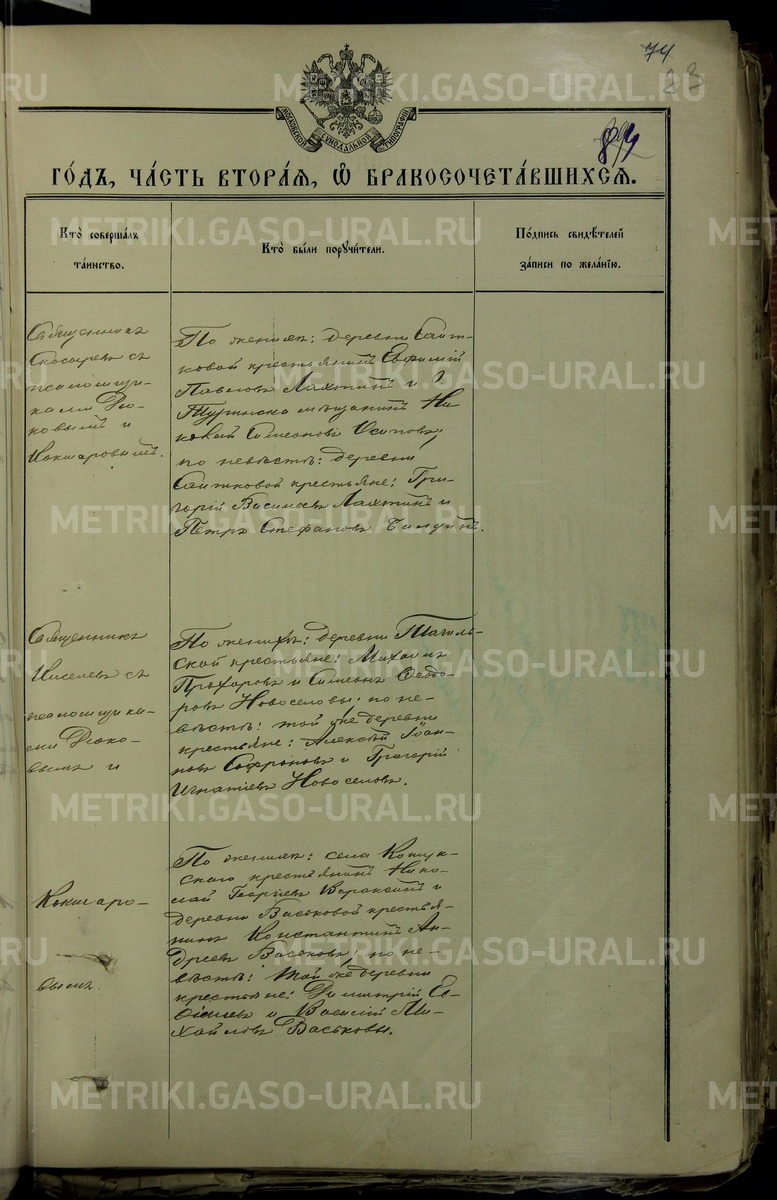 74
23
84
МОСКОВСКОЙ СѴНОДАЛЬНОЙ ТИПОГРАФІИ
ГО́ДЪ, ЧА́СТЬ ВТОРА́Я, Ѡ҆ БРАКОСОЧЕТА́ВШИХСЯ.
Кто̀ соверша́лъ
та́инство.
Кто̀ бы́ли поручи́тели.
По́дпись свидѣ́телей
за́писи по жела́нїю.
Священникъ
Скосыревъ съ
псаломщи-
ками Дюко-
ковымъ и
Кокшаровымъ.
По женихѣ: деревни Саит-
ковой крестьянинъ Евфимій
Павловъ Лахтинъ и г.
Туринска мѣщанинъ Ни
колай Симеоновъ Осиповъ;
по невѣстѣ: деревни
Саитковой крестьяне: Гри-
горій Васильевъ Лахтинъ и
Петръ Стефановъ
Священникъ
Киселевъ съ
псаломщика-
ми Дюко-
вымъ и
По женихѣ: деревни Тагиль-
ской крестьяне: Михаилъ
Прохоровъ и Симеонъ Ѳеодо-
ровъ Новоселовы; по не-
вѣстѣ: той же деревни
крестьяне: Алексѣй Іоан-
новъ Софроновъ и Григорій
Игнатіевъ Новоселовъ.
Кокшаро-
вымъ.
По женихѣ: села Кошук-
скаго крестьянинъ Нико-
лай Георгіевъ Воракинъ и
деревни Васьковой крестья-
нинъ Константинъ Ан-
дреевъ Васьковъ; по не-
вѣстѣ: той же деревни
крестьяне: Димитрій Ев-
ѳиміевъ и Василій Ми-
хайловъ Васьковы.
METRIKI.GASO-URAL.RU